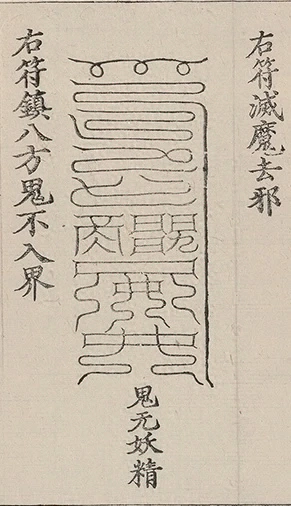 右符滅魔去邪
鬼无妖精
右符鎮八方鬼不入界